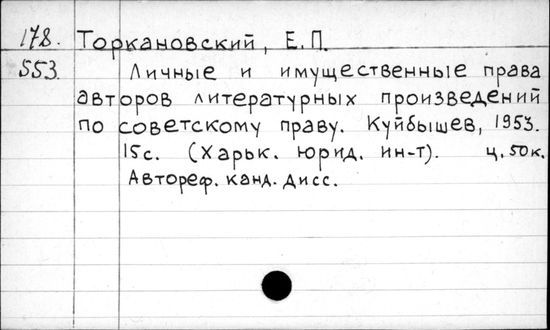 178. Торкановский, Е.П.
553. Личные и имущественные права
авторов литературных произведений
по советскому праву. Куйбышев, 1953.
15с. (Харьк. юрид. ин-т). ц. 50к.
Автореф. канд. дисс.